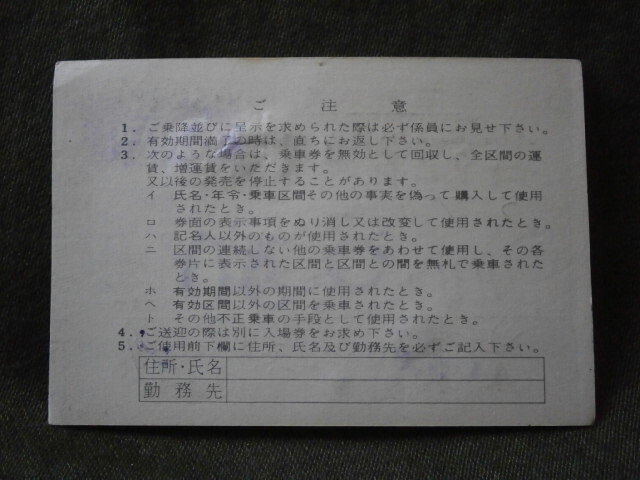 ご注意
1. ご乗降並びに呈示を求められた際は必ず係員にお見せ下さい。
2. 有効期間満了の時は、直ちにお返し下さい。
3. 次のような場合は、乗車券を無効として回収し、全区間の運
賃、増運賃をいただきます。
又以後の発売を停止することがあります。
イ 氏名・年令・乗車区間その他の事実を偽って購入して使用
されたとき。
ロ 券面の表示事項をぬり消し又は改変して使用されたとき。
ハ 記名人以外のものが使用されたとき。
ニ 区間の連続しない他の乗車券をあわせて使用し、その各
券片に表示された区間と区間との間を無札で乗車された
とき。
ホ 有効期間以外の期間に使用されたとき。
ヘ 有効区間以外の区間を乗車されたとき。
ト その他不正乗車の手段として使用されたとき。
4. ご送迎の際は別に入場券をお求め下さい。
5. ご使用前下欄に住所、氏名及び勤務先を必ずご記入下さい。
住所・氏名
勤務先